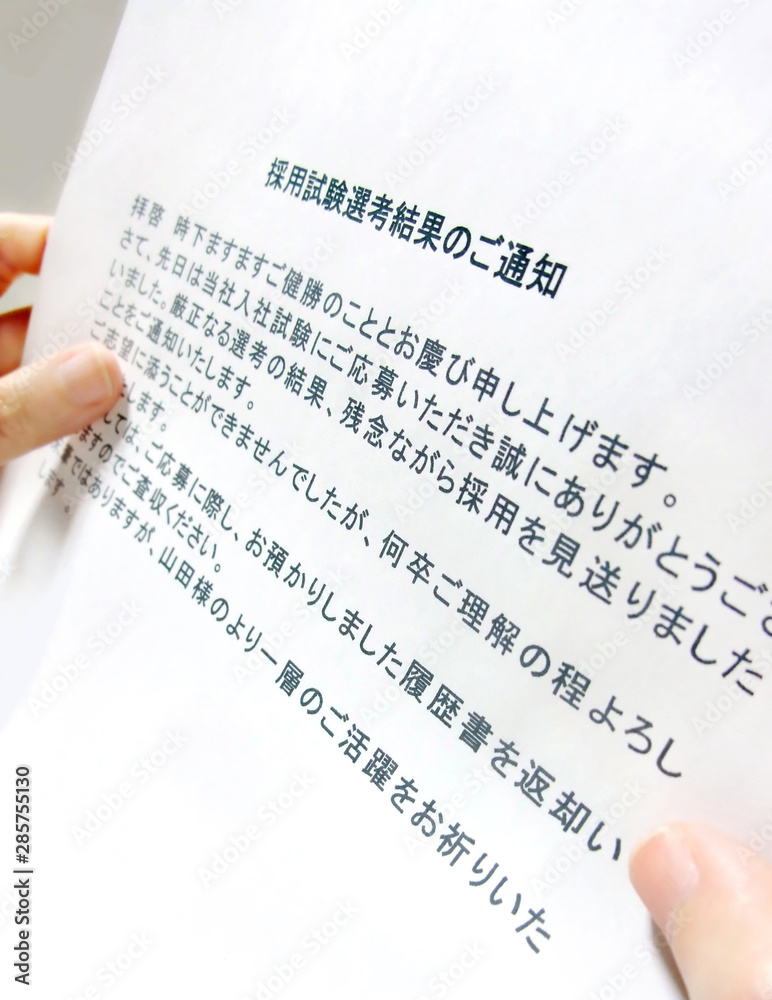 採用試験選考結果のご通知
拝啓　時下ますますご健勝のこととお慶び申し上げます。
さて、先日は当社入社試験にご応募いただき誠にありがとうござ
いました。厳正なる選考の結果、残念ながら採用を見送りました
ことをご通知いたします。
ご志望に添うことができませんでしたが、何卒ご理解の程よろし
します。
しては、ご応募に際し、お預かりしました履歴書を返却い
ますのでご査収ください。
ではありますが、山田様のより一層のご活躍をお祈りいた
します。
Adobe Stock | #285755130